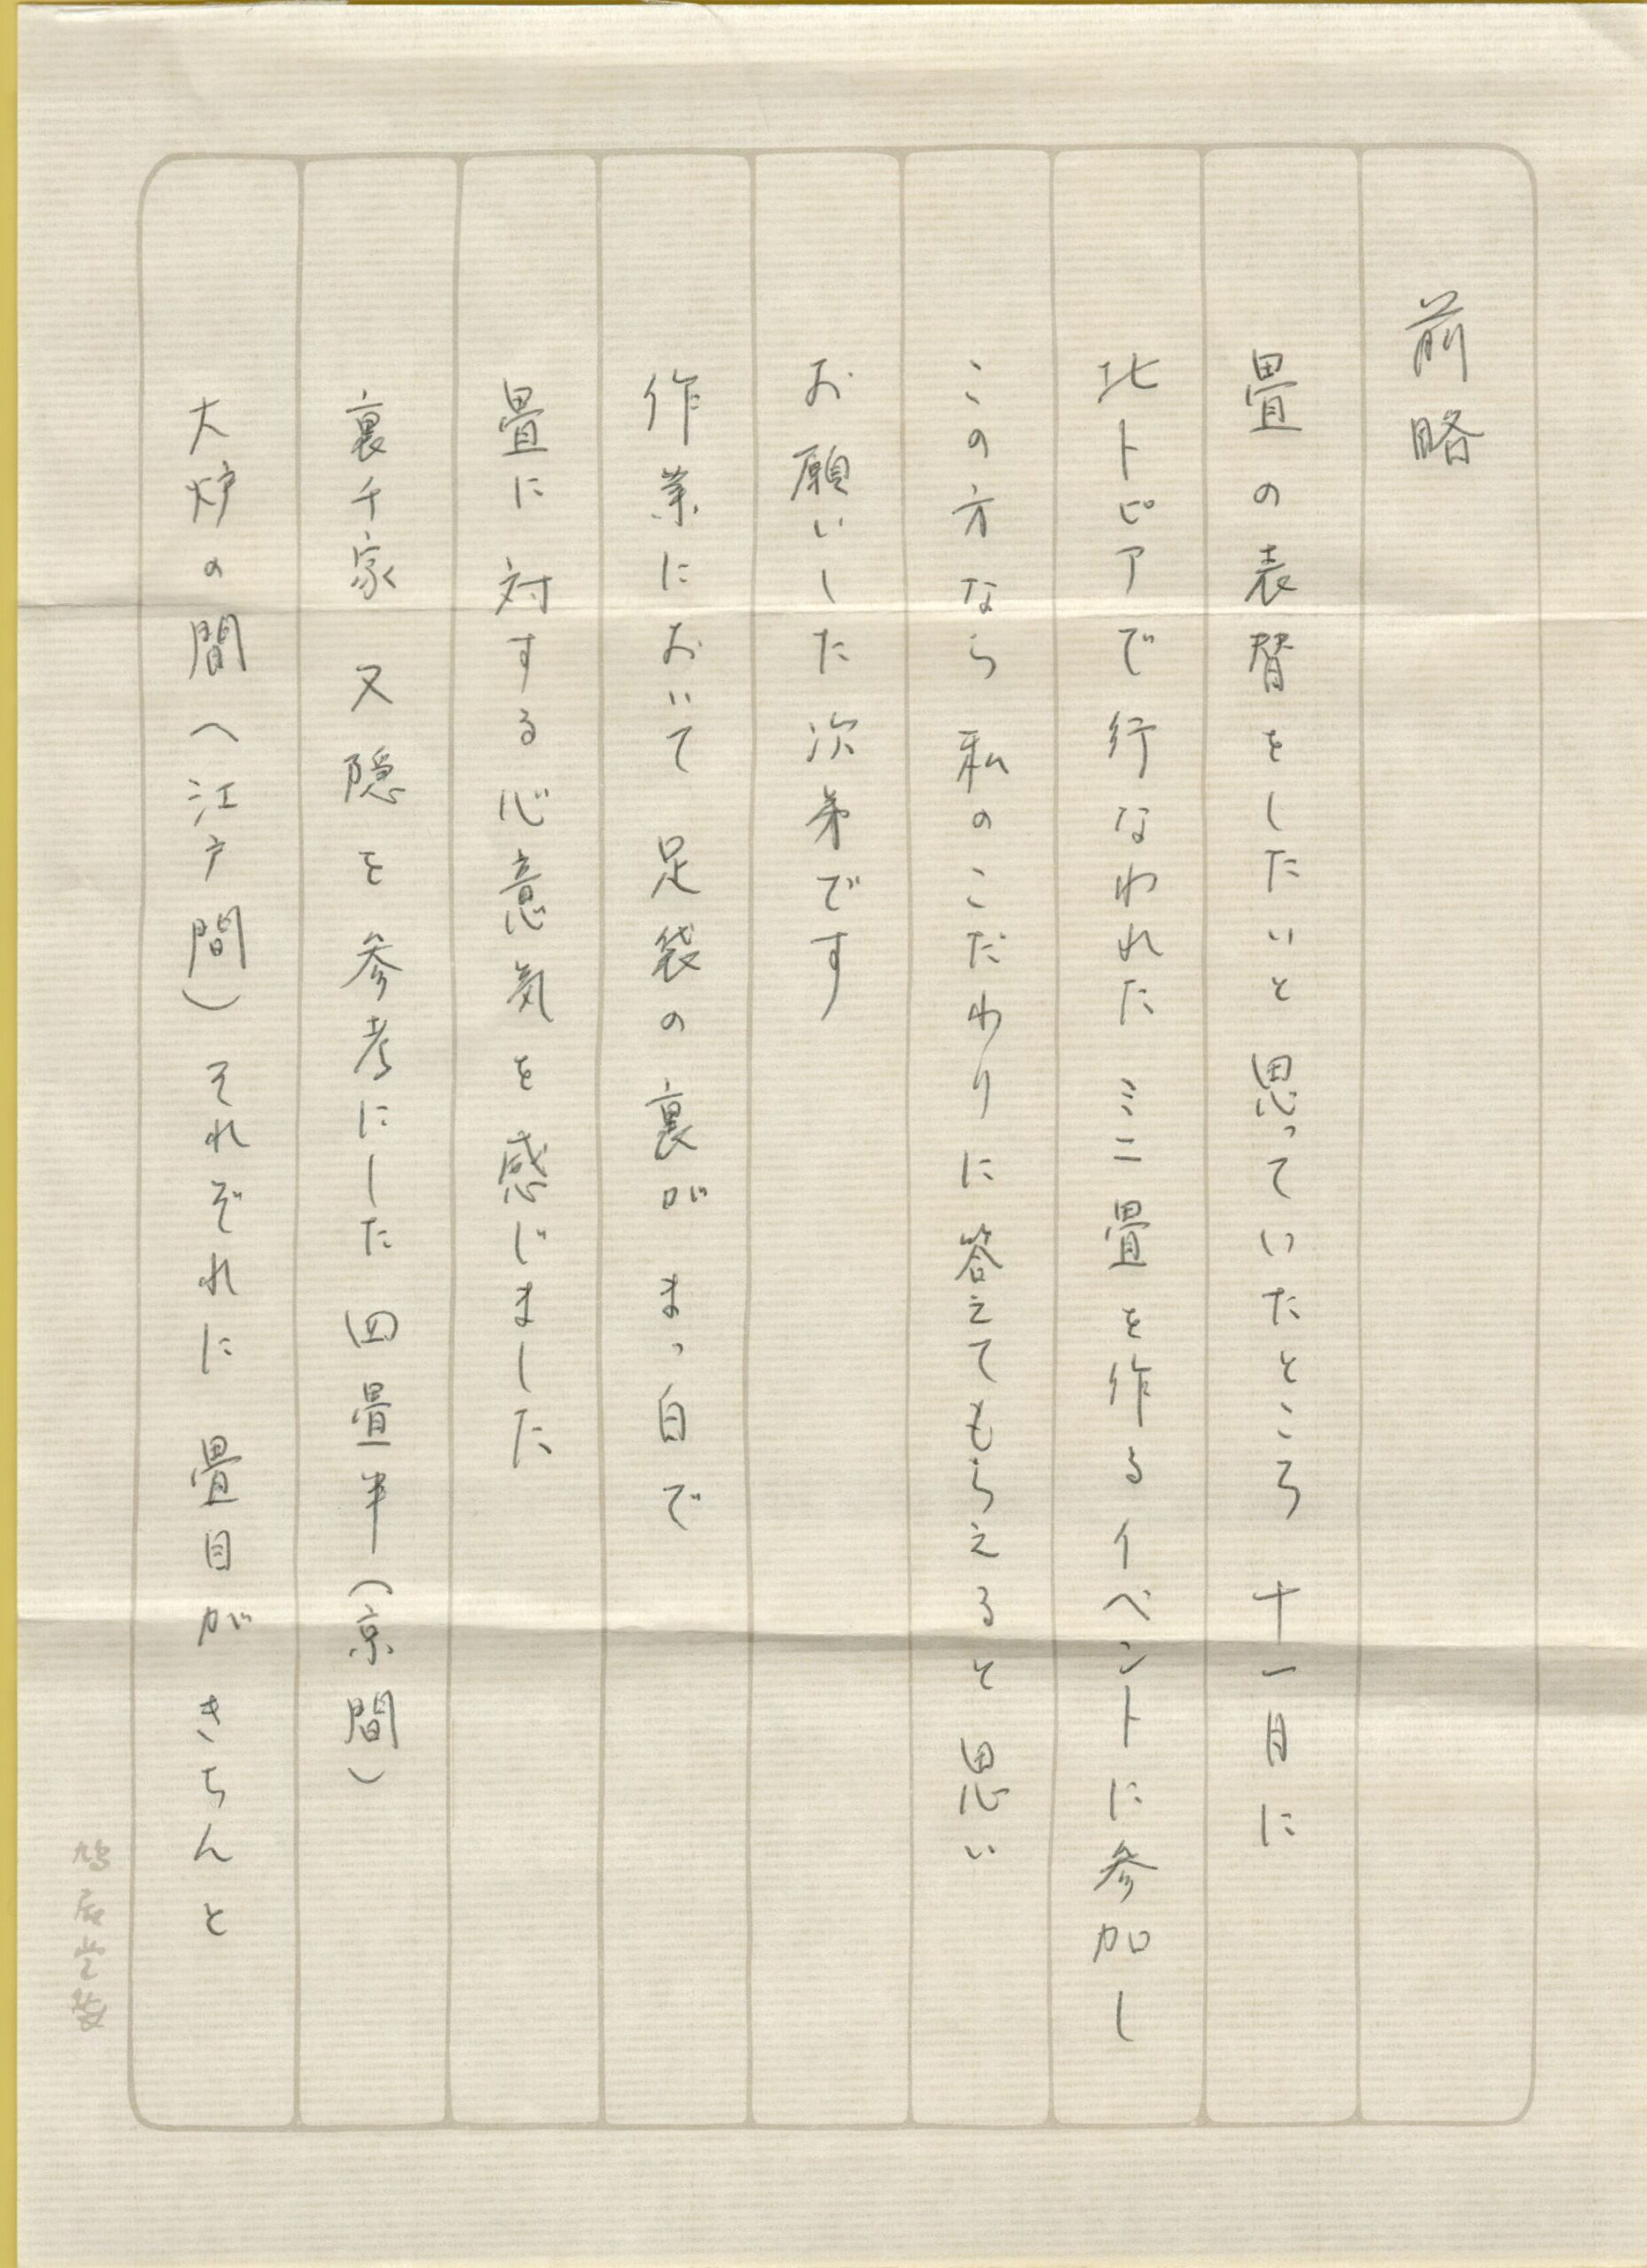 前略
畳の表替をしたいと思っていたところ 十一月に
北トピアで行なわれた ミニ畳を作るイベントに参加し
この方なら 私のこだわりに答えてもらえると思い
お願いした次第です
作業において 足袋の裏が まっ白で
畳に対する心意気を感じました
裏千家 又隠を参考にした 四畳半(京間)
大炉の間(江戸間)それぞれに 畳目が きちんと
鳩居堂製